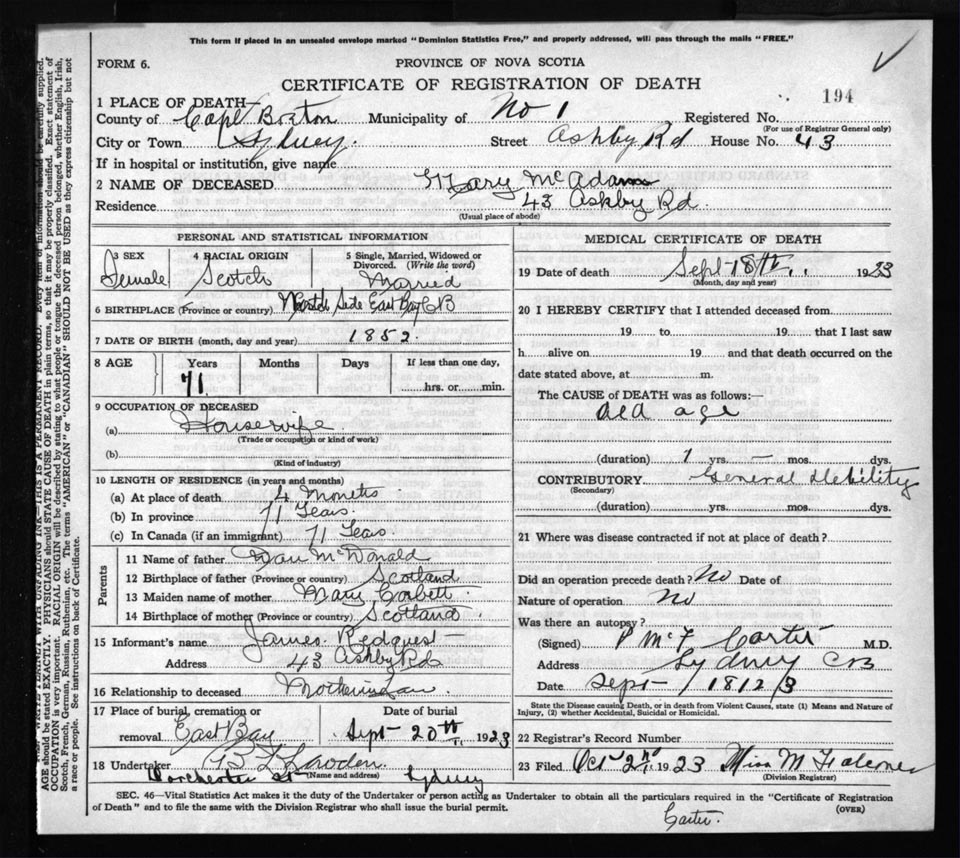 This form if placed in an unsealed envelope marked "Dominion Statistics Free," and properly addressed, will pass through the mails "FREE."
FORM 6.
PROVINCE OF NOVA SCOTIA
CERTIFICATE OF REGISTRATION OF DEATH
194
1 PLACE OF DEATH—
County of Cape Breton Municipality of No 1 Registered No.
(For use of Registrar General only)
City or Town Sydney. Street Ashby Rd House No. 43
If in hospital or institution, give name
2 NAME OF DECEASED Mary McAdam
Residence 43 Ashby Rd.
(Usual place of abode)
PERSONAL AND STATISTICAL INFORMATION
3 SEX Female
4 RACIAL ORIGIN Scotch
5 Single, Married, Widowed or Divorced. (Write the word) Married
6 BIRTHPLACE (Province or country) North Side East Bay CB
7 DATE OF BIRTH (month, day and year) 1852.
8 AGE Years Months Days If less than one day,
71 hrs. or min.
9 OCCUPATION OF DECEASED
(a) Housewife
(Trade or occupation or kind of work)
(b)
(Kind of industry)
10 LENGTH OF RESIDENCE (in years and months)
(a) At place of death 4 Months
(b) In province 71 Years.
(c) In Canada (if an immigrant) 71 Years
Parents
11 Name of father Dan McDonald
12 Birthplace of father (Province or country) Scotland
13 Maiden name of mother Mary Corbett
14 Birthplace of mother (Province or country) Scotland
15 Informant's name James Redquest
Address 43 Ashby Rd
16 Relationship to deceased Mother in Law.
17 Place of burial, cremation or removal. East Bay
Date of burial Sept 20th 1923
18 Undertaker
(Name and address)
Dorchester St Sydney
MEDICAL CERTIFICATE OF DEATH
19 Date of death Sept 18th 1923
(Month, day and year)
20 I HEREBY CERTIFY that I attended deceased from
19 to 19 that I last saw
h alive on 19 and that death occurred on the
date stated above, at m.
The CAUSE of DEATH was as follows:—
Old age
(duration) 1 yrs. – mos. dys.
CONTRIBUTORY General Debility
(Secondary)
(duration) yrs. mos. dys.
21 Where was disease contracted if not at place of death?
Did an operation precede death? No Date of
Nature of operation No
Was there an autopsy?
(Signed) Carter M.D.
Address Sydney CB
Date Sept
State the Disease causing Death, or in death from Violent Causes, state (1) Means and Nature of Injury, (2) whether Accidental, Suicidal or Homicidal.
22 Registrar's Record Number
23 Filed Oct 2nd 1923 Miss M Falconer
(Division Registrar)
SEC. 46—Vital Statistics Act makes it the duty of the Undertaker or person acting as Undertaker to obtain all the particulars required in the "Certificate of Registration
of Death" and to file the same with the Division Registrar who shall issue the burial permit.
(OVER)
Carter.